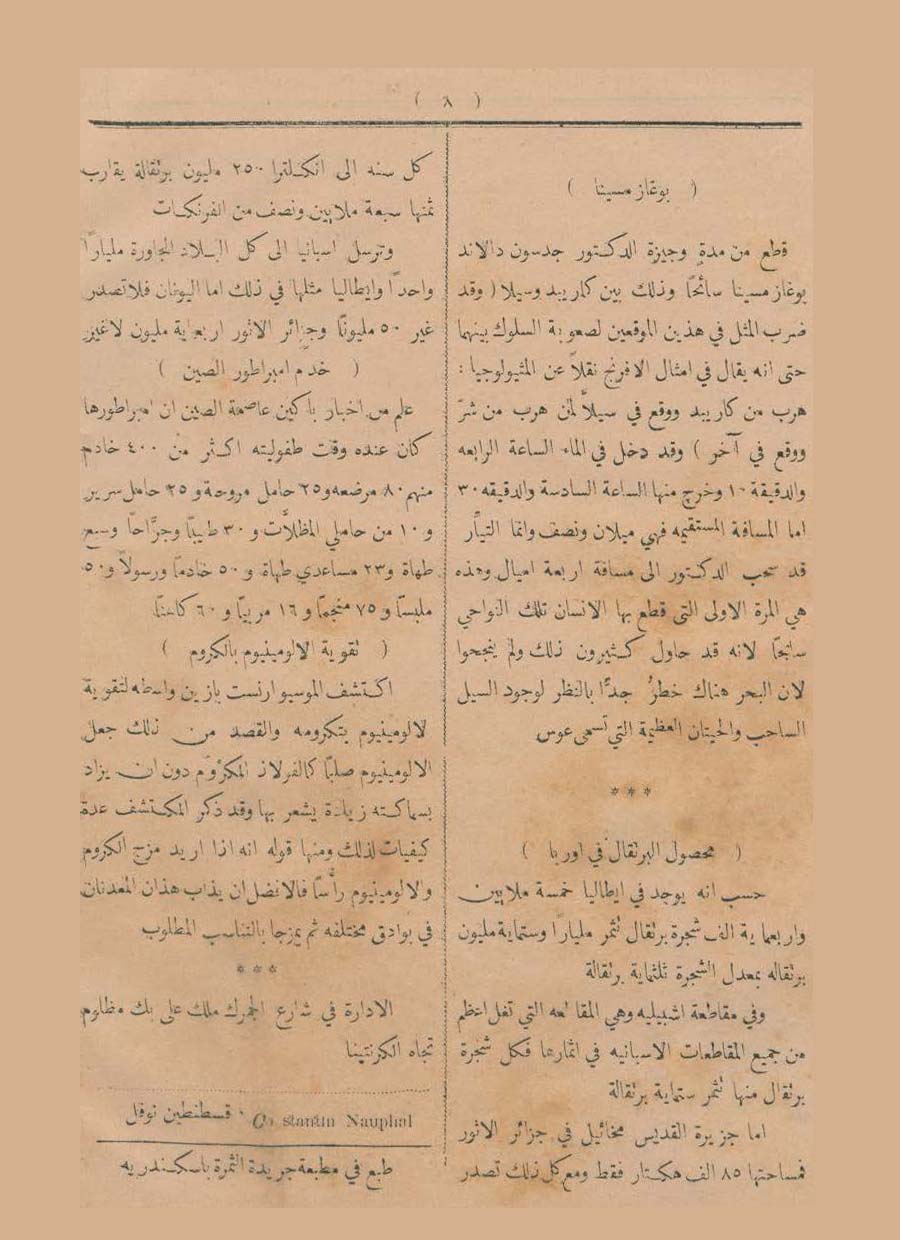 ( ٨ )
( بوغاز مسينا )
قطع من مدةٍ وجيزة الدكتور جدسون دالاند
بوغاز مسينا سائحًا وذلك بين كاريبد وسيلا ( وقد
ضرب المثل في هذين الموقعين لصعوبة السلوك بينهما
حتى انه يقال في امثال الافرنج نقلاً عن المثيولوجيا :
هرب من كاريبد ووقع في سيلاَّ لمن هرب من شرّ
ووقع في آخر ) وقد دخل في الماء الساعة الرابعه
والدقيقة ١٠ وخرج منها الساعة السادسة والدقيقه ٣٠
اما المسافة المستقيمه فهي ميلان ونصف وانما التيَّار
قد سحب الدكتور الى مسافة اربعة اميال وهذه
هي المرة الاولى التى قطع بها الانسان تلك النواحي
سابحًا لانه قد حاول كثيرون ذلك ولم ينجحوا
لان البحر هناك خطرٌ جدًّا بالنظر لوجود السيل
الساحب والحيتان العظيمة التي تسمى عوس
***
( محصول البرتقال في اوربا )
حسب انه يوجد في ايطاليا خمسة ملايين
واربعماية الف شجرة برتقال تثمر مليارًا وستماية مليون
برتقاله بمعدل الشجرة ثلثماية برتقالة
وفي مقاطعة اشبيليه وهي المقاطعه التي تغل اعظم
من جميع المقاطعات الاسبانيه في اثمارها فكل شجرة
برتقال منها تثمر ستماية برتقالة
اما جزيرة القديس مخائيل في جزائر الاثور
فمساحتها ٨٥ الف هكتار فقط ومع كل ذلك تصدر
كل سنه الى انكلترا ٢٥٠ مليون برتقالة يقارب
ثمنها سبعة ملايين ونصف من الفرنكات
وترسل اسبانيا الى كل البلاد المجاورة مليارًا
واحدًا وايطاليا مثلها في ذلك اما اليونان فلا تصدر
غير ٥٠ مليونًا وجزائر الاثور اربعماية مليون لاغير
( خدم امبراطور الصين )
علم من اخبار باكين عاصمة الصين ان امبراطورها
كان عنده وقت طفوليته اكثر من ٤٠٠ خادم
منهم ٨٠ مرضعه و٢٥ حامل مروحة و٢٥ حامل سرير
و ١٠ من حاملي المظلاَّت و ٣٠ طبيبًا وجرَّاحًا وسبع
طهاة و٢٣ مساعدي طهاة و ٥٠ خادمًا ورسولاً و ٥٠
ملبسًا و ٧٥ منجمًا و ١٦ مربيًا و ٦٠ كاهنًا
( تقوية الالومينيوم بالكروم )
اكتشف الموسيو ارنست بازين واسطه لتقوية
لالومينيوم بتكرومه والقصد من ذلك جعل
الالومينيوم صلبًا كالفولاذ المكروم دون ان يزاد
بسماكته زيادة يشعر بها وقد ذكر المكتشف عدة
كيفيات لذلك ومنها قوله انه اذا اريد مزج الكروم
والالومينيوم رأسًا فالافضل ان يذاب هذان المعدنان
في بوادق مختلفه ثم يمزجا بالتناسب المطلوب
***
الادارة في شارع الجمرك ملك على بك مظلوم
تجاه الكرنتينا
قسطنطين نوفل Constantin Nauphal
طبع في مطبعة جريدة الثمرة باسكندريه